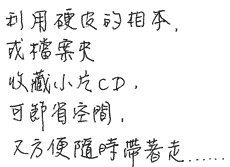 利用硬皮的相本,
或檔案夾
收藏小片CD,
可節省空間,
又方便隨時帶著走……